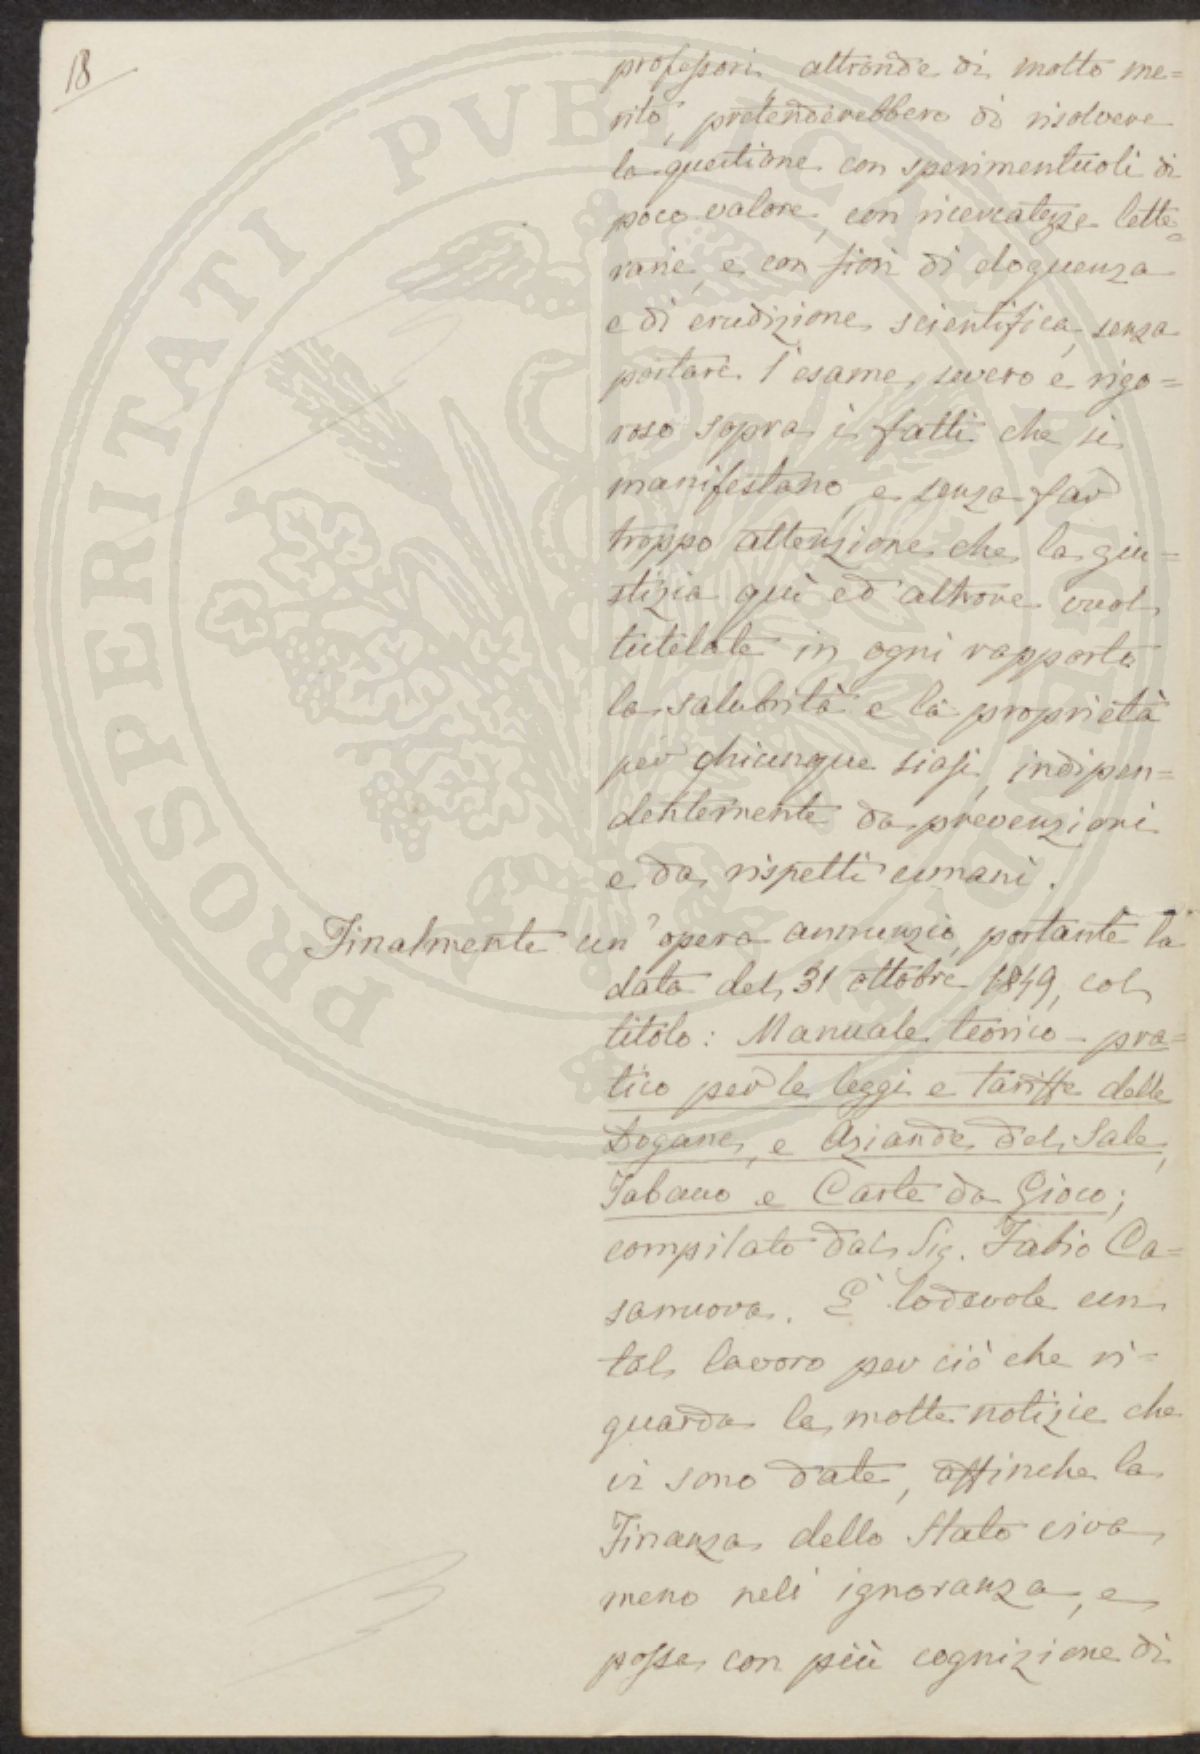 18
professori altronde di molto me=
rito, pretenderebbero di risolvere
la questione con sperimentuoli di
poco valore, con ricercatezze lette=
rarie, e con fiori di eloquenza
e di erudizione scientifica, senza
portare l'esame severo e rigo=
roso sopra i fatti che si
manifestano, e senza far
troppo attenzione che la giu=
stizia quì ed altrove vuol
tutelate in ogni rapporto
la salubrità e la proprietà
per chiunque siasi, indipen=
dentemente da prevenzioni
e da rispetti umani.
Finalmente un' opera annunzio, portante la
data del 31 ottobre 1849, col
titolo: Manuale teorico-pra=
tico per le leggi e tariffe delle
Dogane, e Aziande del Sale,
Tabacco e Carte da Gioco;
compilato dal Sig. Fabio Ca=
sanuova. E' lodevole un
tal lavoro per ciò che ri=
guarda le molte notizie che
vi sono date, affinche la
Finanza dello Stato viva
meno nell' ignoranza, e
possa con più cognizione di
PROSPERITATI PUBLICAE AUGENDAE